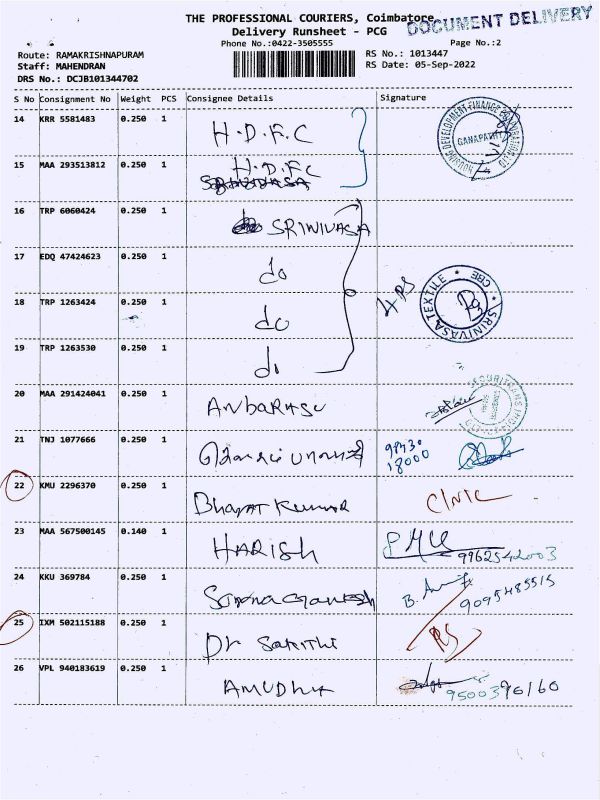 THE PROFESSIONAL COURIERS, Coimbatore
DOCUMENT DELIVERY
Delivery Runsheet - PCG
Phone No.:0422-3505555
Page No.:2
Route: RAMAKRISHNAPURAM
RS No.: 1013447
Staff: MAHENDRAN
RS Date: 05-Sep-2022
DRS No.: DCJB101344702
S No Consignment No Weight PCS Consignee Details Signature
14 KRR 5581483 0.250 1 H.D.F.C
HOUSING DEVELOPMENT FINANCE CORPORATION LTD
GANAPATHY
15 MAA 293513812 0.250 1 H.D.F.C
16 TRP 6060424 0.250 1 SRINIVASA
17 EDQ 47424623 0.250 1 do
18 TRP 1263424 0.250 1 do
SRINIVASA TEXTILE
CBE
19 TRP 1263530 0.250 1 do
20 MAA 291424041 0.250 1 ANbARASU
21 TNJ 1077666 0.250 1
18000
22 KMU 2296370 0.250 1 BharAT Kumar CliNIC
23 MAA 567500145 0.140 1 HARISh
9962542003
24 KKU 369784 0.250 1
9095485515
25 IXM 502115188 0.250 1 Dr SaKithi RS
26 VPL 940183619 0.250 1 AMUDhA
9500396160